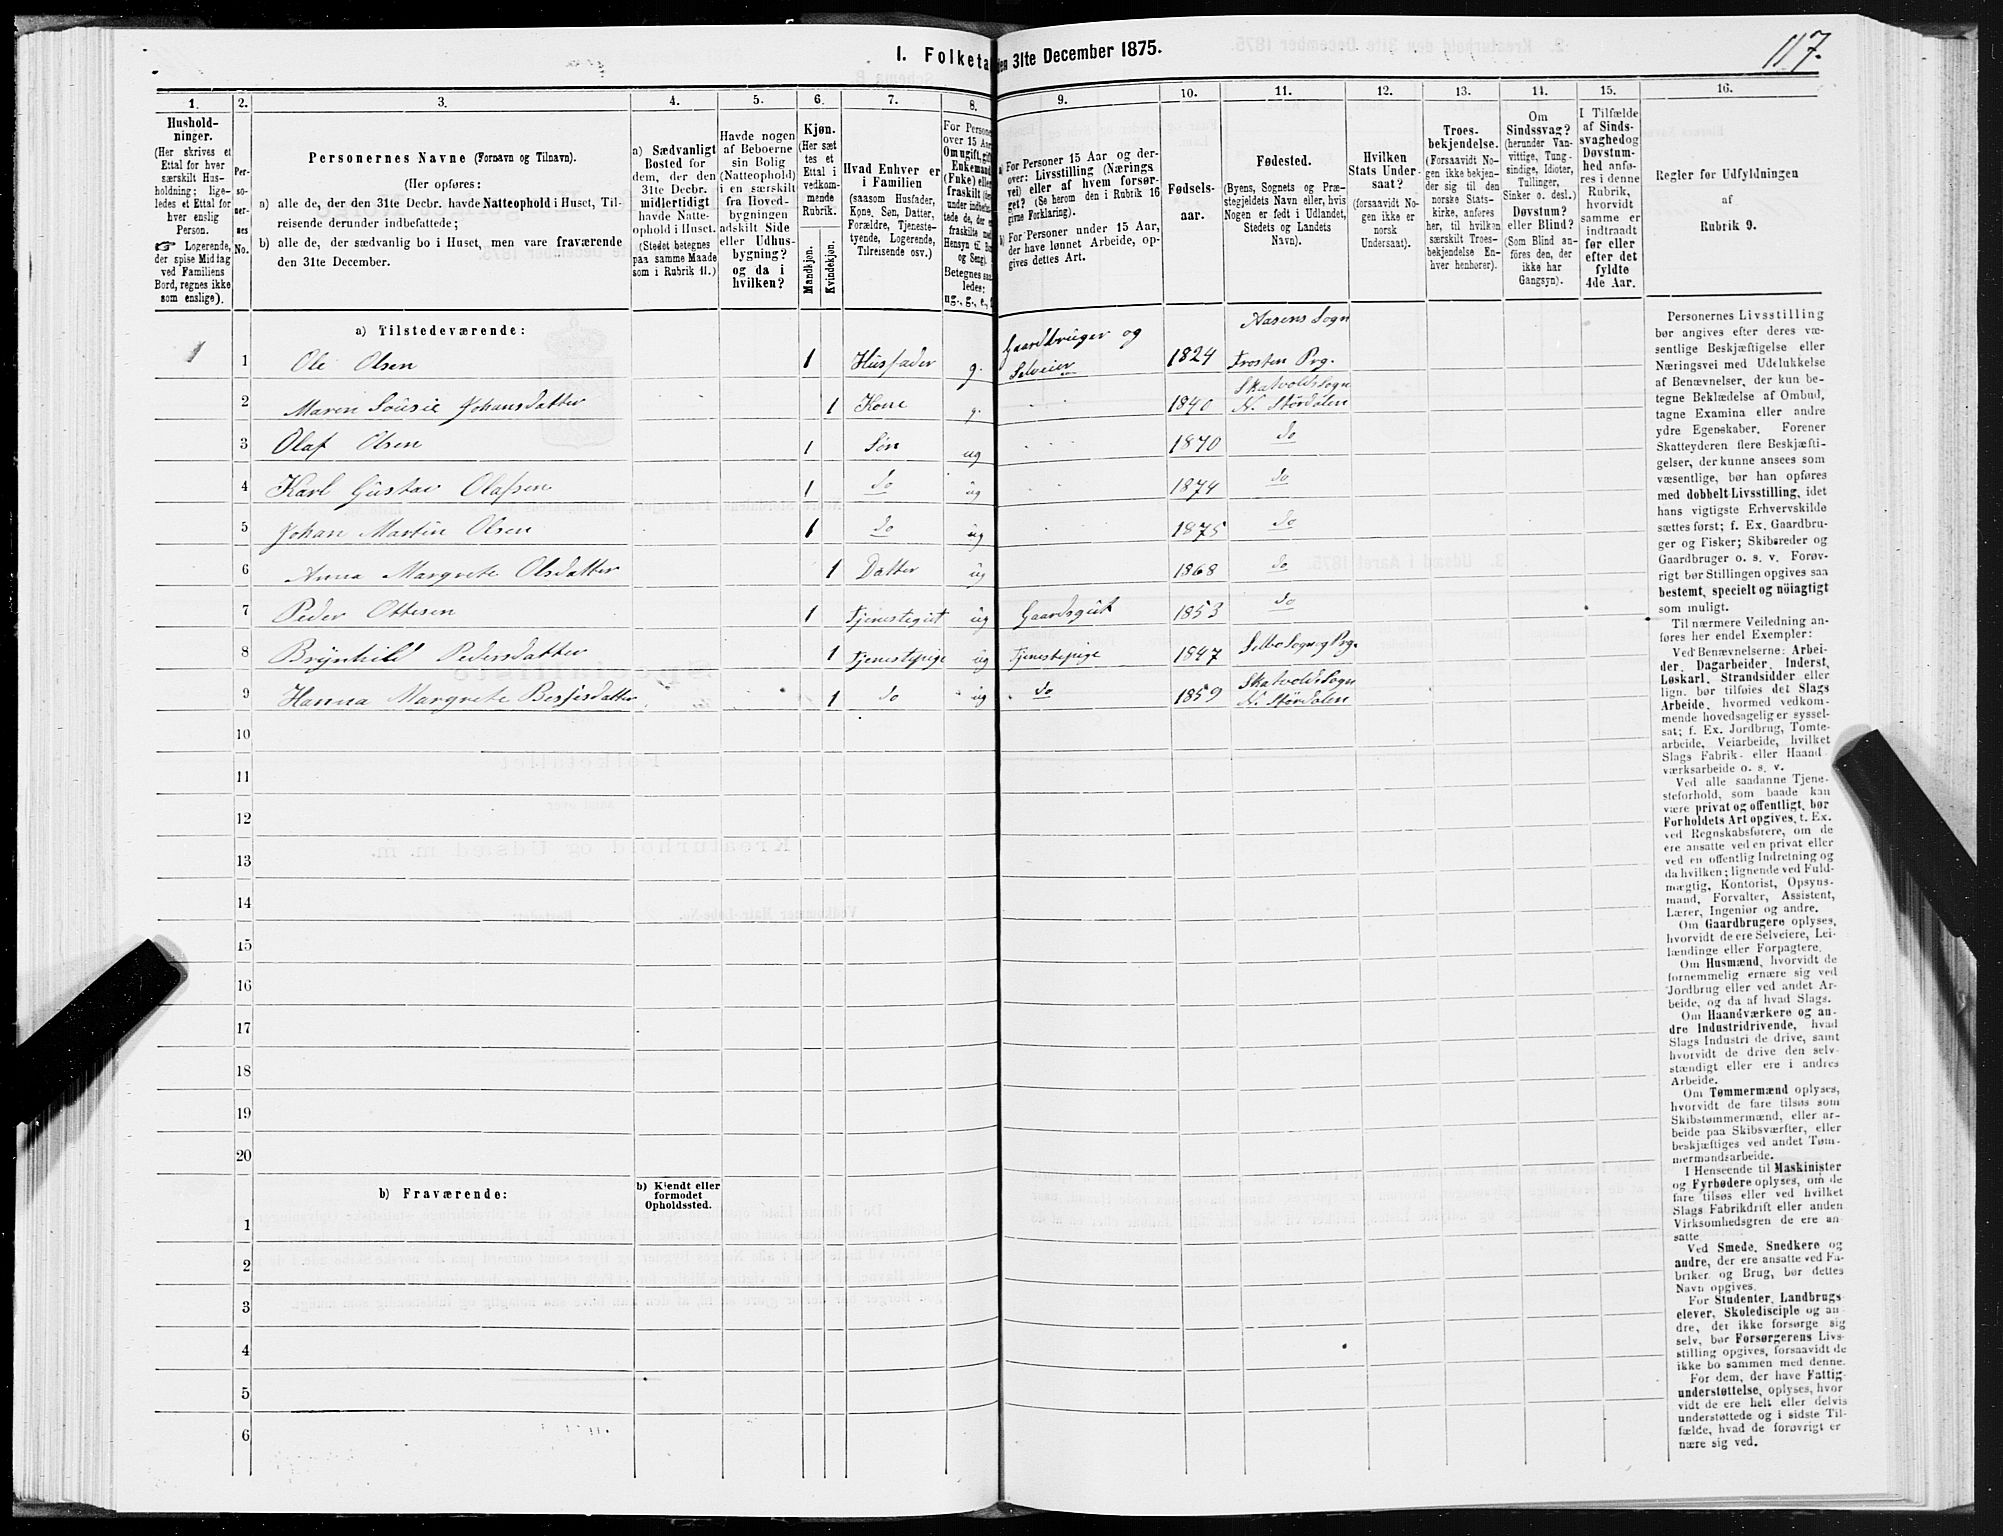 117.
I. Folketa
den 31te December 1875.
1.
2.
3.
4.
5.
6.
7.
8.
9.
10.
11.
12.
13.
14.
15.
16.
Hushold-
ninger.
(Her skrives et
Ettal for hver
særskilt Hus-
holdning; lige-
ledes et Ettal for
hver enslig
Person.
☞ Logerende,
der spise Middag
ved Familiens
Bord, regnes ikke
som enslige).
Per-
so-
ner-
nes
No.
Personernes Navne (Fornavn og Tilnavn).
(Her opføres:
a) alle de, der den 31te Decbr. havde Natteophold i Huset, Til-
reisende derunder indbefattede;
b) alle de, der sædvanlig bo i Huset, men vare fraværende
den 31te December.
a) Sædvanligt
Bosted for
dem, der den
31te Decbr.
midlertidigt
havde Natte-
ophold i Huset.
(Stedet betegnes
paa samme Maade
som i Rubrik 11.)
Havde nogen
af Beboerne
sin Bolig
(Natteophold)
i en særskilt
fra Hoved-
bygningen
adskilt Side
eller Udhus-
bygning?
og da i
hvilken?
Kjøn.
(Her sæt-
tes et
Ettal i
vedkom-
mende
Rubrik.
Mandkjøn.
Kvindekjøn.
Hvad Enhver er
i Familien
(saasom Husfader,
Kone, Søn, Datter,
Forældre, Tjeneste-
tyende, Logerende,
Tilreisende osv.)
For Persone
over 15 Aar
Om ugift, gift
Enkemand
(Enke) elle
fraskilt
Betegnes saa
ledes:
ug., g., e.,
a) For Personer 15 Aar og der-
over: Livsstilling (Nærings
vei) eller af hvem forsør-
get? (Se herom den i Rubrik 16
givne Forklaring).
b) For Personer under 15 Aar,
der have lønnet Arbeide, op-
gives dettes Art.
Fødsels-
aar.
Fødested.
(Byens, Sognets og Præ-
stegjeldets Navn eller, hvis
Nogen er født i Udlandet,
Stedets og Landets
Navn).
Hvilken
Stats Under-
saat?
(forsaavidt No-
gen ikke er
norsk
Undersaat).
Troes-
bekjendelse.
(Forsaavidt No-
gen ikke bekjen-
der sig til den
norske Stats-
kirke, anføres
her, til hvilken
særskilt Troes-
bekjendelse En-
hver henhører).
Om
Sindssvag?
(herunder Van-
vittige, Tung-
sindige, Idioter,
Tullinger,
Sinker o. desl.)
Døvstum?
eller Blind?
(Som Blind an-
føres den, der
ikke har
Gangsyn).
I Tilfælde
af Sinds-
svaghed og
Døvstum-
hed anfø-
res i denne
Rubrik,
hvorvidt
samme er
indtraadt
før eller
efter det
fyldte
4de Aar.
Regler for Udfyldningen
af
Rubrik 9.
a) Tilstedeværende:
1 1 Ole Olsen 1 Husfader g. Gaardbruger og Selveier 1824 Aasens Sogn Frosten Prg.
2 Maren Lousie Johansdatter 1 Kone g. 1840 Skatvolds Sogn N. Størdalen
3 Olaf Olsen 1 Søn ug 1870 do
4 Karl Gustav Olafsen 1 do ug 1874 do
5 Johan Martin Olsen 1 do ug 1875 do
6 Anna Margrete Olsdatter 1 Datter ug 1868 do
7 Peder Ottesen 1 Tjenestegut ug Gaardsgut 1853 do
8 Brynhild Pedersdatter 1 Tjenestepige ug Tjenestepige 1847 Selbo Sogn og Prg.
9 Hanna Margrete Besjesdatter 1 do ug do 1859 Skatvolds Sogn N. Størdalen
10
11
12
13
14
15
16
17
18
19
20
b) Fraværende:
b) Kjendt eller
formodet
Opholdssted.
1
2
3
4
5
6
Personernes Livsstilling
bør angives efter deres væ-
sentlige Beskjæftigelse eller
Næringsvei med Udelukkelse
af Benævnelser, der kun be-
tegne Beklædelse af Ombud,
tagne Examina eller andre
ydre Egenskaber. Forener
Skatteyderen flere Beskjæfti-
gelser, der kunne ansees som
væsentlige, bør han opføres
med dobbelt Livsstilling, idet
hans vigtigste Erhvervskilde
sættes først; f. Ex. Gaardbru-
ger og Fisker; Skibsreder og
Gaardbruger o. s. v. Forøv-
rigt bør Stillingen opgives saa
bestemt, specielt og nöiagtigt
som muligt.
Til nærmere Veiledning an-
føres her endel Exempler:
Ved Benævnelserne: Arbei-
der, Dagarbeider, Inderst,
Løskarl, Strandsidder eller
lign. bør tilføies det Slags
Arbeide, hvormed vedkom-
mende hovedsagelig er syssel-
sat; f. Ex. Jordbrug, Tomte-
arbeide, Veiarbeide, hvilket
Slags Fabrik- eller Haand-
værksarbeide o. s. v.
Ved alle saadanne Tjene-
steforhold, som baade kan
være privat og offentligt, bør
Forholdets Art opgives, t. Ex.
ved Regnskabsførere, om de
ere ansatte ved en privat eller
ved en offentlig Indretning og
da hvilken; lignende ved Fuld-
mægtig, Kontorist, Opsyns-
mand, Forvalter, Assistent,
Lærer, Ingeniør og andre.
Om Gaardbrugere oplyses,
hvorvidt de ere Selveiere, Lei-
lændinge eller Forpagtere.
Om Husmænd, hvorvidt de
fornemmelig ernære sig ved
Jordbrug eller ved andet Ar-
beide, og da af hvad Slags.
Om Haandværkere og an-
dre Industridrivende, hvad
Slags Industri de drive, samt
hvorvidt de drive den selv-
stændigt eller ere i andres
Arbeide.
Om Tømmermænd oplyses,
hvorvidt de fare tilsøs som
Skibstømmermænd, eller ar-
beide paa Skibsværfter, eller
beskjæftiges ved andet Tøm-
mermandsarbeide.
I Henseende til Maskinister
og Fyrbødere oplyses, om de
fare tilsøs eller ved hvilket
Slags Fabrikdrift eller anden
Virksomhedsgren de ere an-
satte.
Ved Smede, Snedkere og
andre, der ere ansatte ved Fa-
briker og Brug, bør dettes
Navn opgives.
For Studenter, Landbrugs-
elever, Skoledisciple og an-
dre, der ikke forsørge sig
selv, bør Forsørgerens Livs-
stilling opgives, forsaavidt de
ikke bo sammen med denne.
For dem, der have Fattig-
understøttelse, oplyses, hvor-
vidt de ere helt eller delvis
understøttede og i sidste Til-
fælde, hvad de forøvrigt er-
nære sig ved.